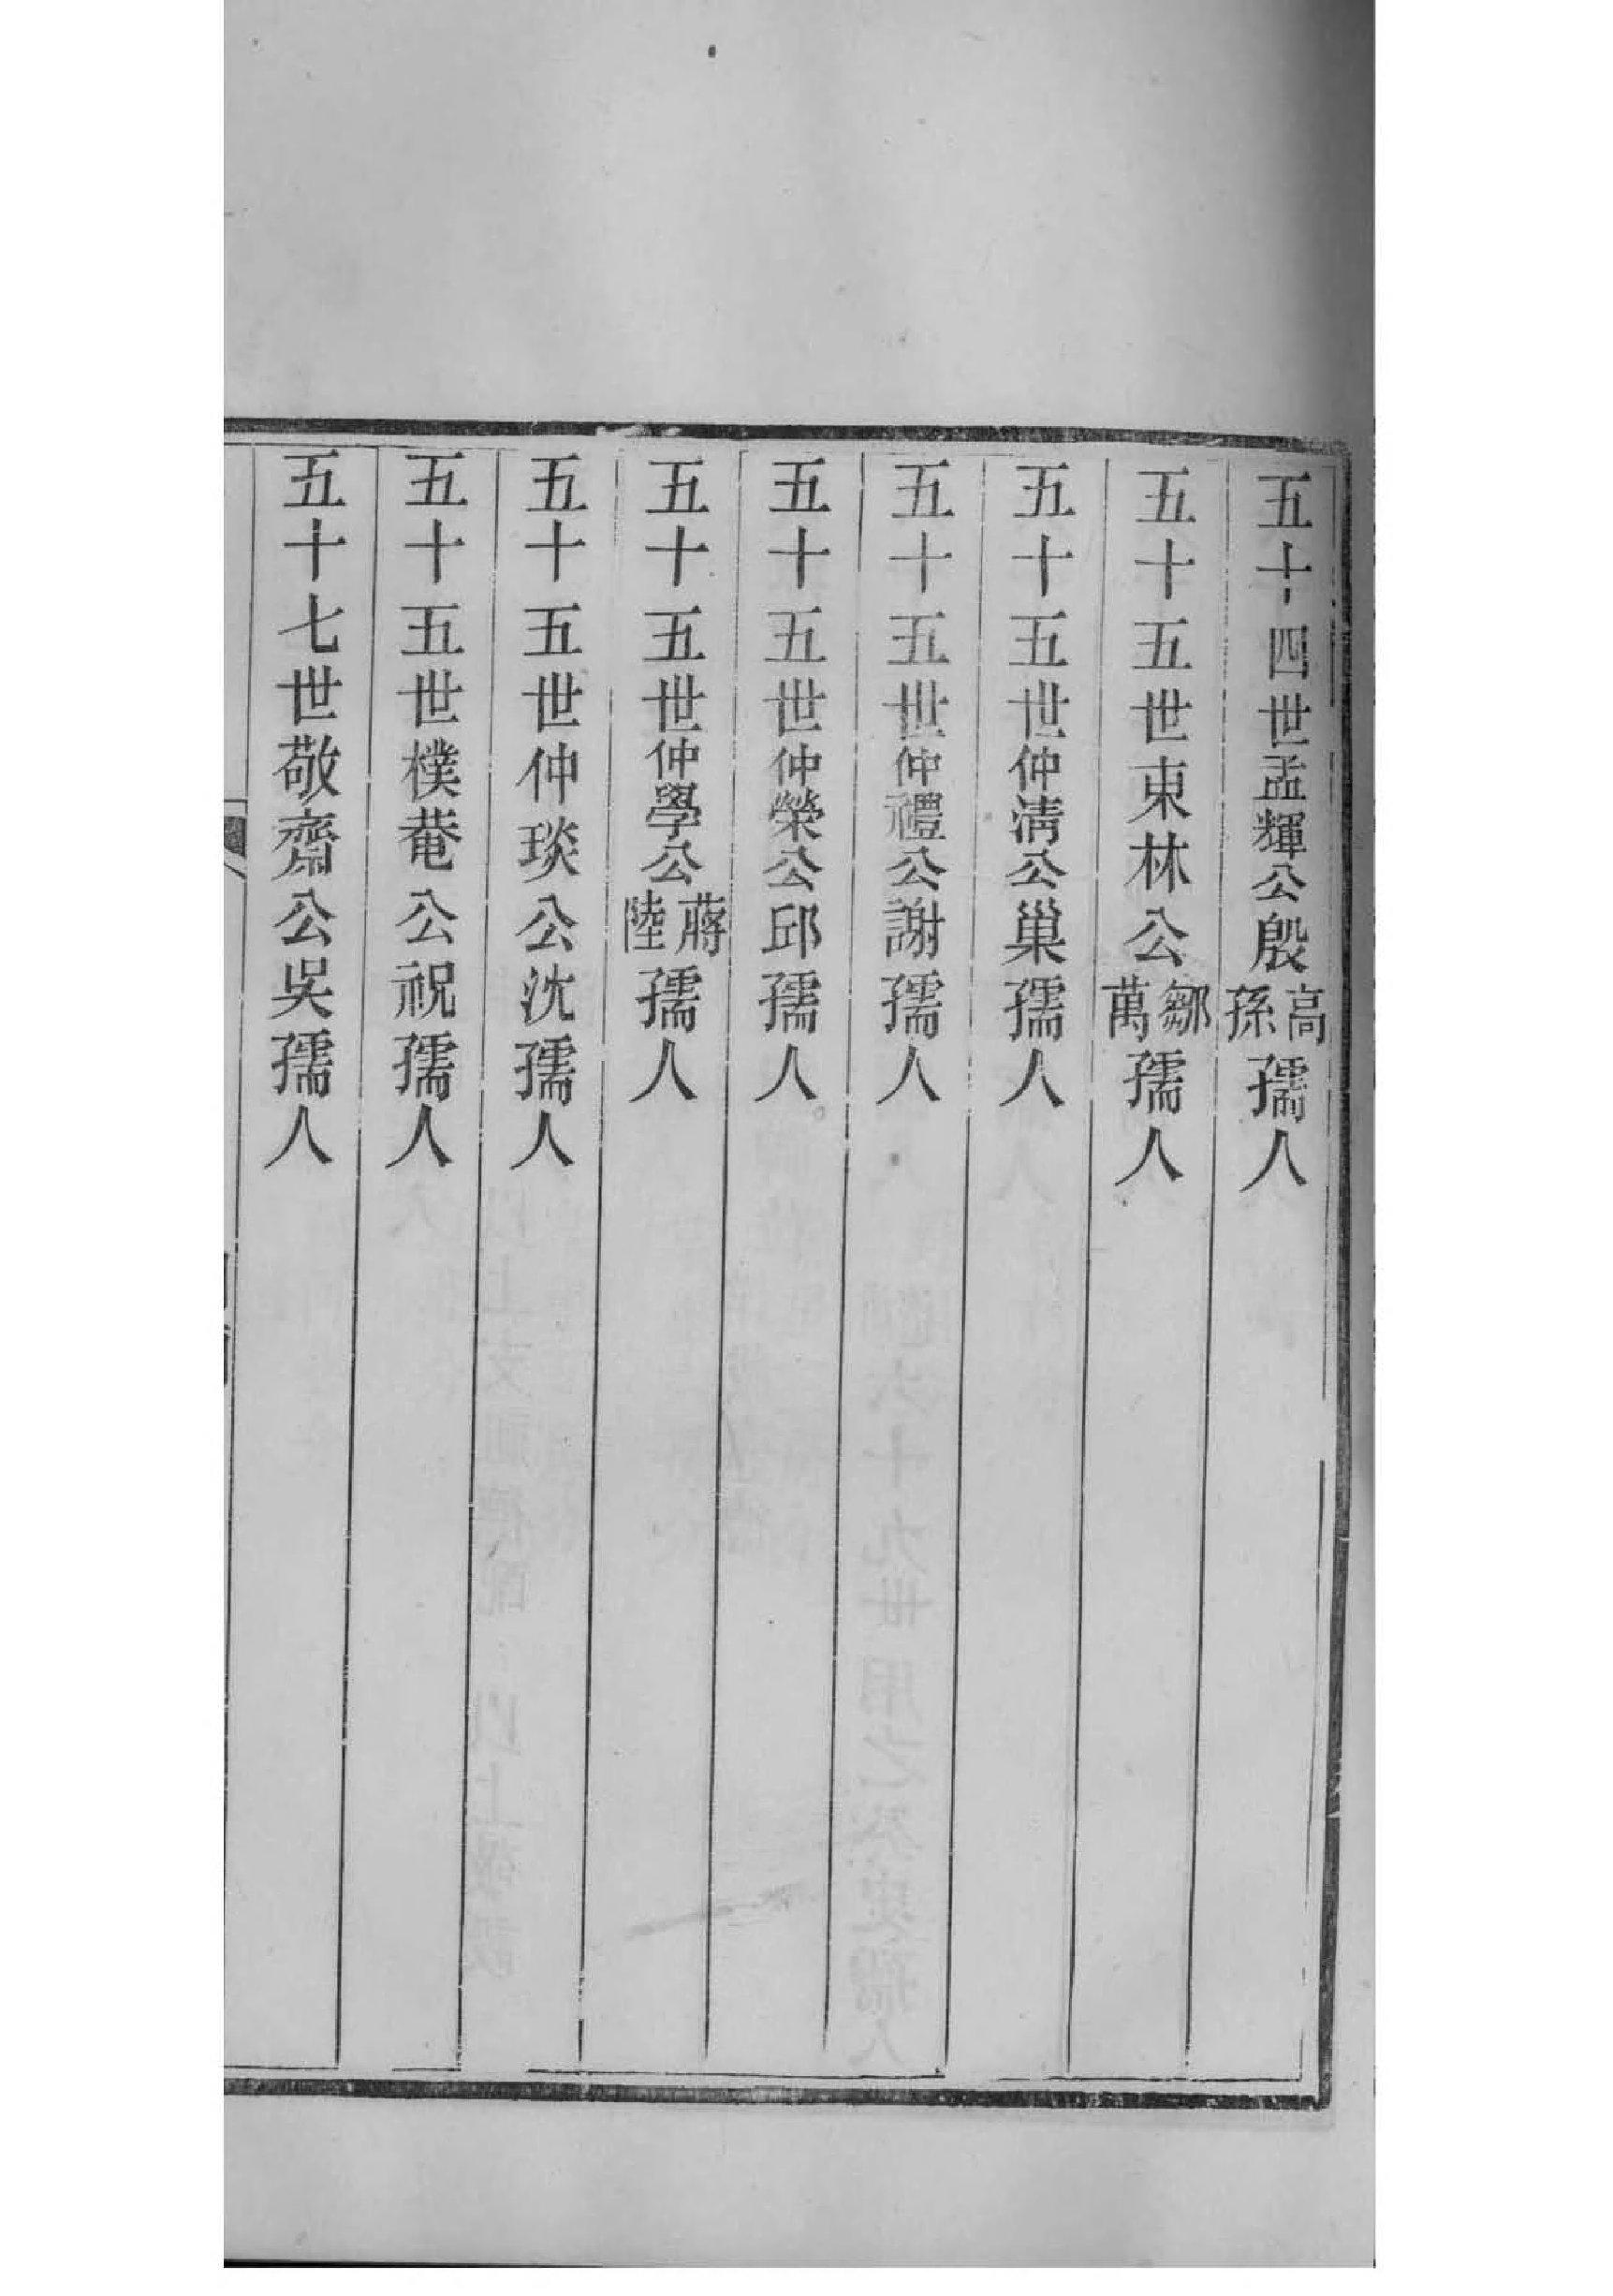 五十四世孟輝公殷高孫孺人
五十五世東林公鄒萬孺人
五十五世仲淸公巢孺人
五十五世仲禮公謝孺人
五十五世仲榮公邱孺人
五十五世仲學公蔣陸孺人
五十五世仲琰公沈孺人
五十五世樸菴公祝孺人
五十七世敬齋公吳孺人